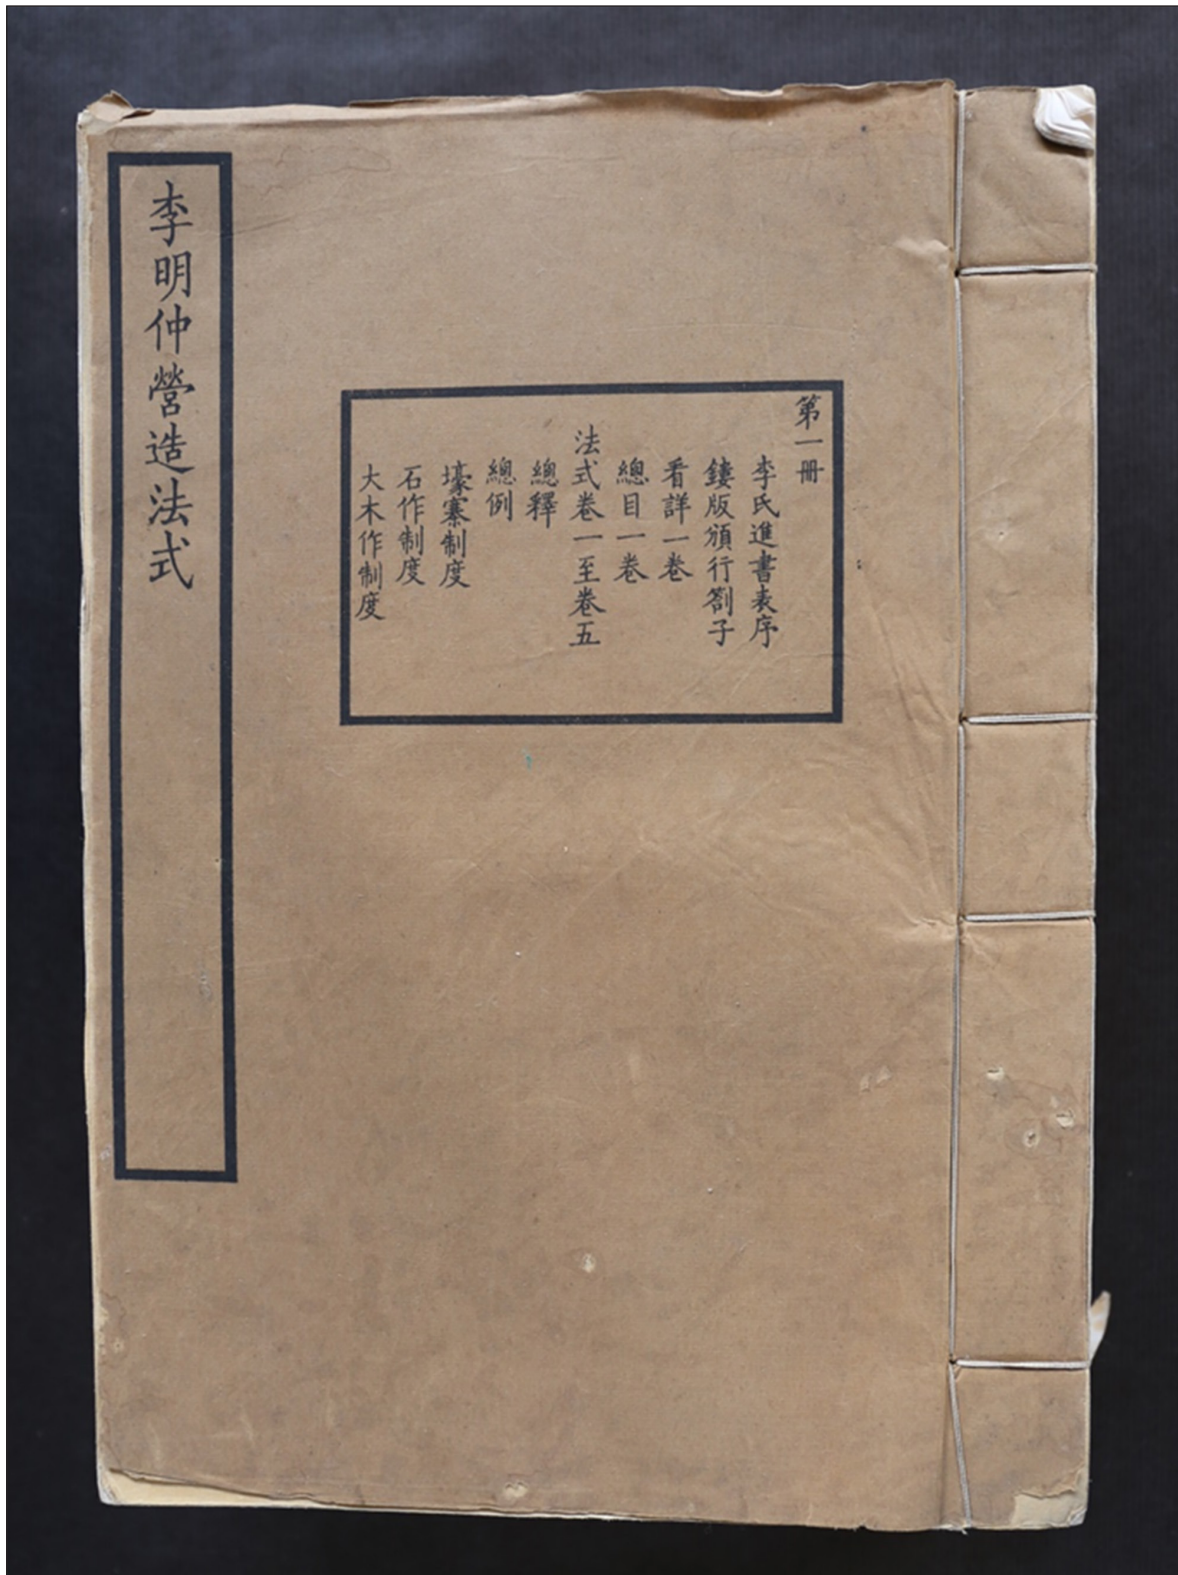 第一冊
李氏進書表序
鏤版頒行劄子
看詳一卷
總目一卷
法式卷一至卷五
總釋
總例
壕寨制度
石作制度
大木作制度
李明仲營造法式